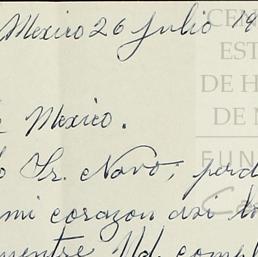 Mexico 26 julio 19
CEN
EST
DE H
DE M
Mexico.
FUN
Sr. Novo; perd
mi corazon asi to
Ud. compl